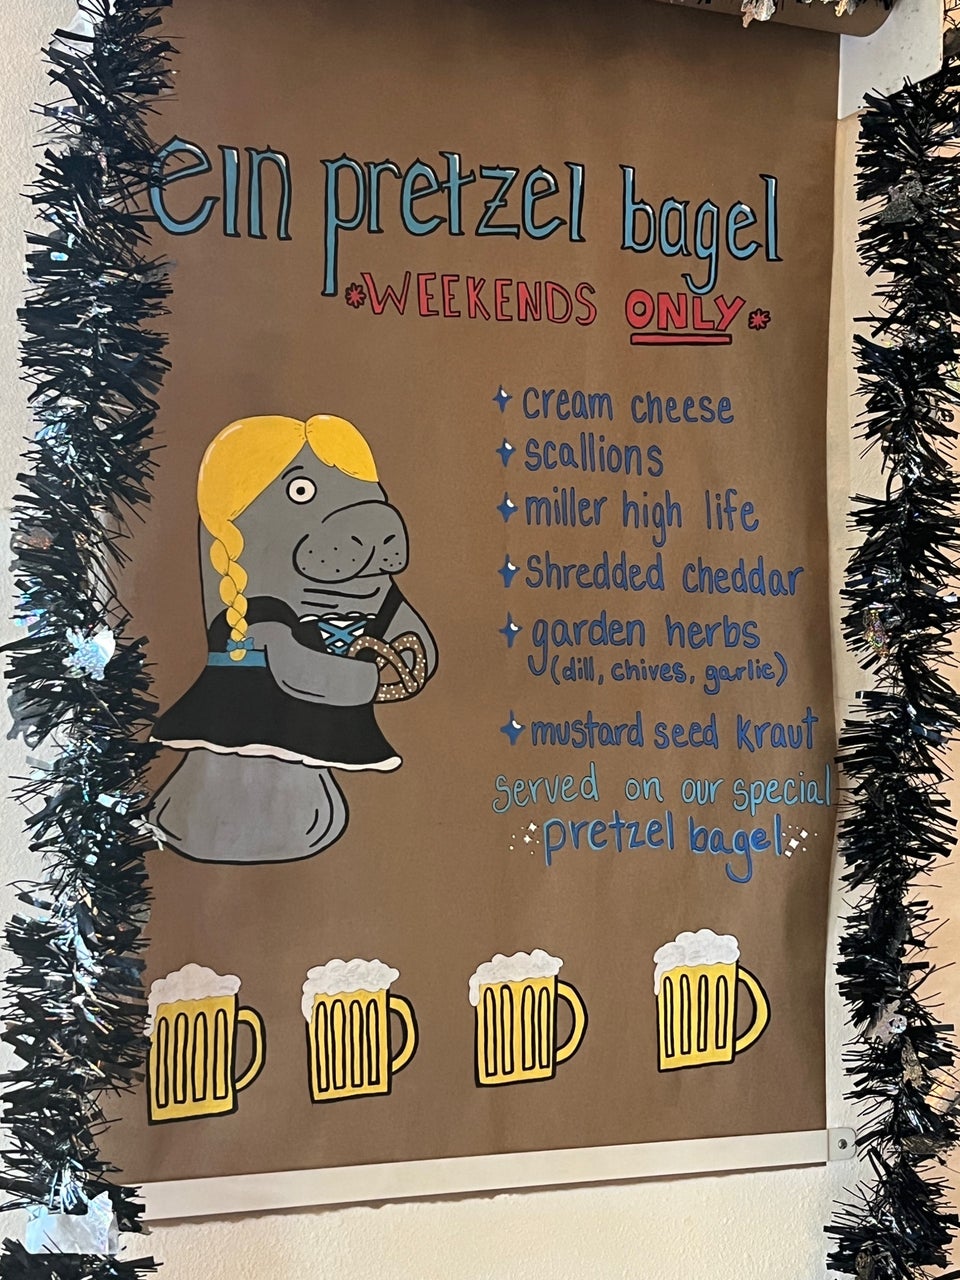 ein pretzel bagel
*WEEKENDS ONLY*
cream cheese
scallions
miller high life
shredded cheddar
garden herbs
(dill, chives, garlic)
mustard seed kraut
served on our special
pretzel bagel